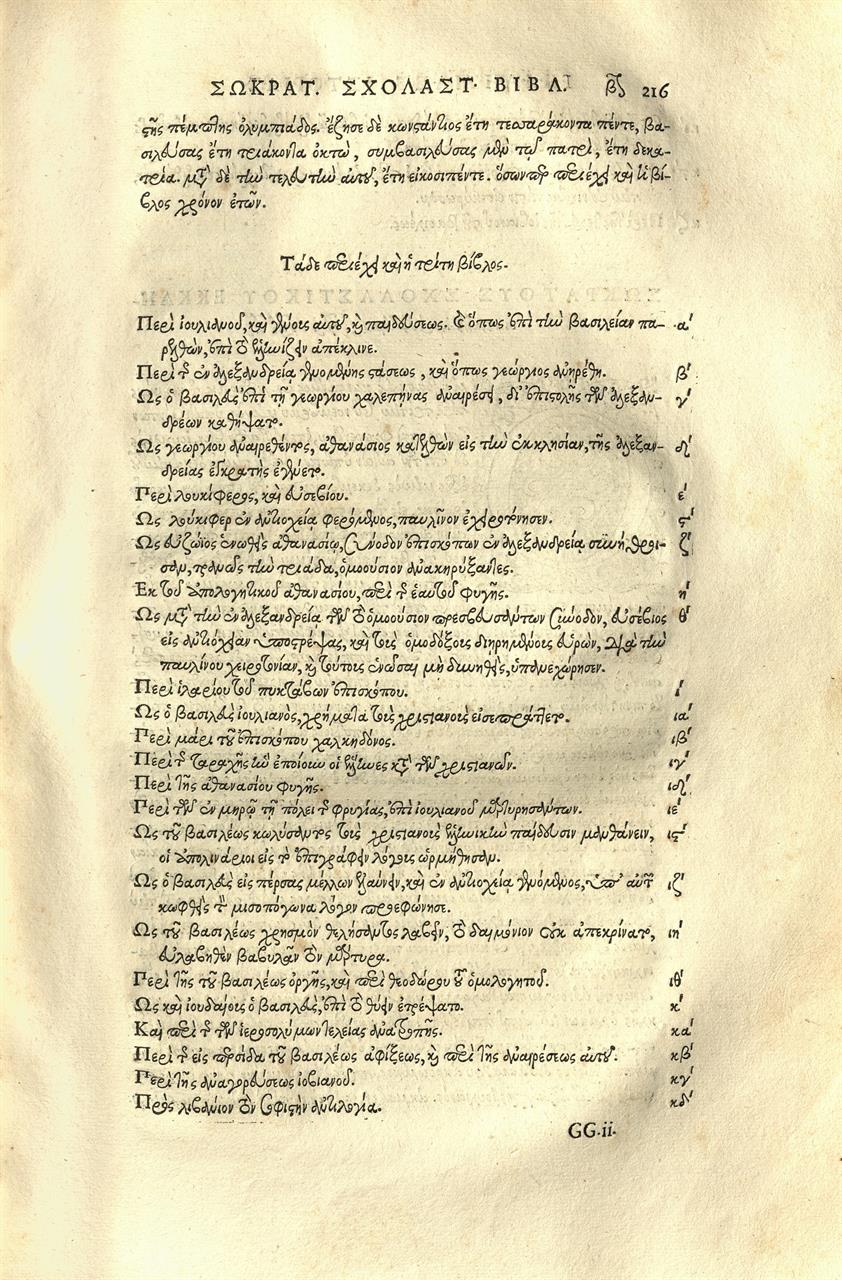 ΣΩΚΡΑΤ. ΣΧΟΛΑΣΤ. ΒΙΒΛ. β 216
στῆς πέμπτης ὀλυμπιάδος. ἔζησε δὲ κωνστάντιος ἔτη τεσσαράκοντα πέντε, βα-
σιλεύσας ἔτη τριάκοντα ὀκτὼ, συμβασιλεύσας μὲν τῷ πατρὶ, ἔτη δεκα-
τρία. μετὰ δὲ τὴν τελευτὴν αὐτοῦ, ἔτη εἰκοσιπέντε. ὅσωνπερ περιέχει καὶ ἡ βί-
βλος χρόνον ἐτῶν.
Τάδε περιέχει καὶ ἡ τρίτη βίβλος.
Περὶ ἰουλιανοῦ, καὶ γένους αὐτοῦ, καὶ παιδεύσεως. καὶ ὅπως ἐπὶ τὴν βασιλείαν πα- α΄
ρελθὼν, ἐπὶ τὸ ἑλληνίζειν ἀπέκλινε.
Περὶ τῆς ἐν ἀλεξανδρείᾳ γενομένης στάσεως, καὶ ὅπως γεώργιος ἀνῃρέθη. β΄
Ως ὁ βασιλεὺς ἐπὶ τῇ γεωργίου χαλεπήνας ἀναιρέσει, δι' ἐπιστολῆς τῶν ἀλεξαν- γ΄
δρέων καθήψατο.
Ως γεωργίου ἀναιρεθέντος, ἀθανάσιος κατελθὼν εἰς τὴν ἐκκλησίαν, τῆς ἀλεξαν- δ΄
δρείας ἐγκρατὴς ἐγένετο.
Περὶ λουκίφερος, καὶ εὐσεβίου. ε΄
Ως λούκιφερ ἐν ἀντιοχείᾳ φερόμενος, παυλῖνον ἐχειροτόνησεν. ς΄
Ως εὐζώϊος ἑνωθεὶς ἀθανασίῳ, σύνοδον ἐπισκόπων ἐν ἀλεξανδρείᾳ συνήθροι- ζ΄
σαν, τρανῶς τὴν τριάδα, ὁμοούσιον ἀνακηρύξαντες.
Εκ τοῦ ἀπολογητικοῦ ἀθανασίου, περὶ τῆς ἑαυτοῦ φυγῆς. η΄
Ως μετὰ τὴν ἐν ἀλεξανδρείᾳ τῶν τὸ ὁμοούσιον πρεσβευσάντων σύνοδον, εὐσέβιος θ΄
εἰς ἀντιόχειαν ὑποστρέψας, καὶ τοὺς ὁμοδόξους διῃρημένους εὑρὼν, διὰ τὴν
παυλίνου χειροτονίαν, καὶ τούτοις ἑνῶσαι μὴ δυνηθεὶς, ὑπανεχώρησεν.
Περὶ ἱλαρίου τοῦ πυκτάβων ἐπισκόπου. ι΄
Ως ὁ βασιλεὺς ἰουλιανὸς, χρήματα τοὺς χριστιανοὺς εἰσεπράττετο. ια΄
Περὶ μάρι τοῦ ἐπισκόπου χαλκηδόνος. ιβ΄
Περὶ τῆς ταραχῆς ἣν ἐποίουν οἱ ἕλληνες κατὰ τῶν χριστιανῶν. ιγ΄
Περὶ τῆς ἀθανασίου φυγῆς. ιδ΄
Περὶ τῶν ἐν μηρῷ τῇ πόλει τῆς φρυγίας, ἐπὶ ἰουλιανοῦ μαρτυρησάντων. ιε΄
Ως τοῦ βασιλέως κωλύσαντος τοὺς χριστιανοὺς ἑλληνικὴν παίδευσιν μανθάνειν, ις΄
οἱ ἀπολινάριοι εἰς τὸ ἐπιγράφειν λόγους ὡρμήθησαν.
Ως ὁ βασιλεὺς εἰς πέρσας μέλλων ἐλαύνειν, καὶ ἐν ἀντιοχείᾳ γενόμενος, ὑπ' αὐτῶν ιζ΄
σκωφθεὶς τὸν μισοπώγωνα λόγον προεφώνησε.
Ως τοῦ βασιλέως χρησμὸν θελήσαντος λαβεῖν, τὸ δαιμόνιον οὐκ ἀπεκρίνατο, ιη΄
εὐλαβηθὲν βαβυλᾶν τὸν μάρτυρα.
Περὶ τῆς τοῦ βασιλέως ὀργῆς, καὶ περὶ θεοδώρου τοῦ ὁμολογητοῦ. ιθ΄
Ως καὶ ἰουδαίους ὁ βασιλεὺς, ἐπὶ τὸ θύειν ἐτρέψατο. κ΄
Καὶ περὶ τῆς τῶν ἱεροσολύμων τελείας ἀνατροπῆς. κα΄
Περὶ τῆς εἰς περσίδα τοῦ βασιλέως ἀφίξεως, καὶ περὶ τῆς ἀναιρέσεως αὐτοῦ. κβ΄
Περὶ τῆς ἀναγορεύσεως ἰοβιανοῦ. κγ΄
Πρὸς λιβάνιον τὸν σοφιστὴν ἀντιλογία. κδ΄
GG.ii.